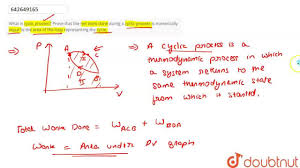 642649165
What is cyclic process? Prove that the net work done during a cyclic process is numerically
equal to the area of the loop representing the cycle.
⇒ P
A
C
B
D
V
⇒ A cyclic process is a
thermodynamic process in which
a system returns to the
same thermodynamic state
from which it started.
Total Work Done = W_ACB + W_BDA
Work = Area under PV graph
doubtnut